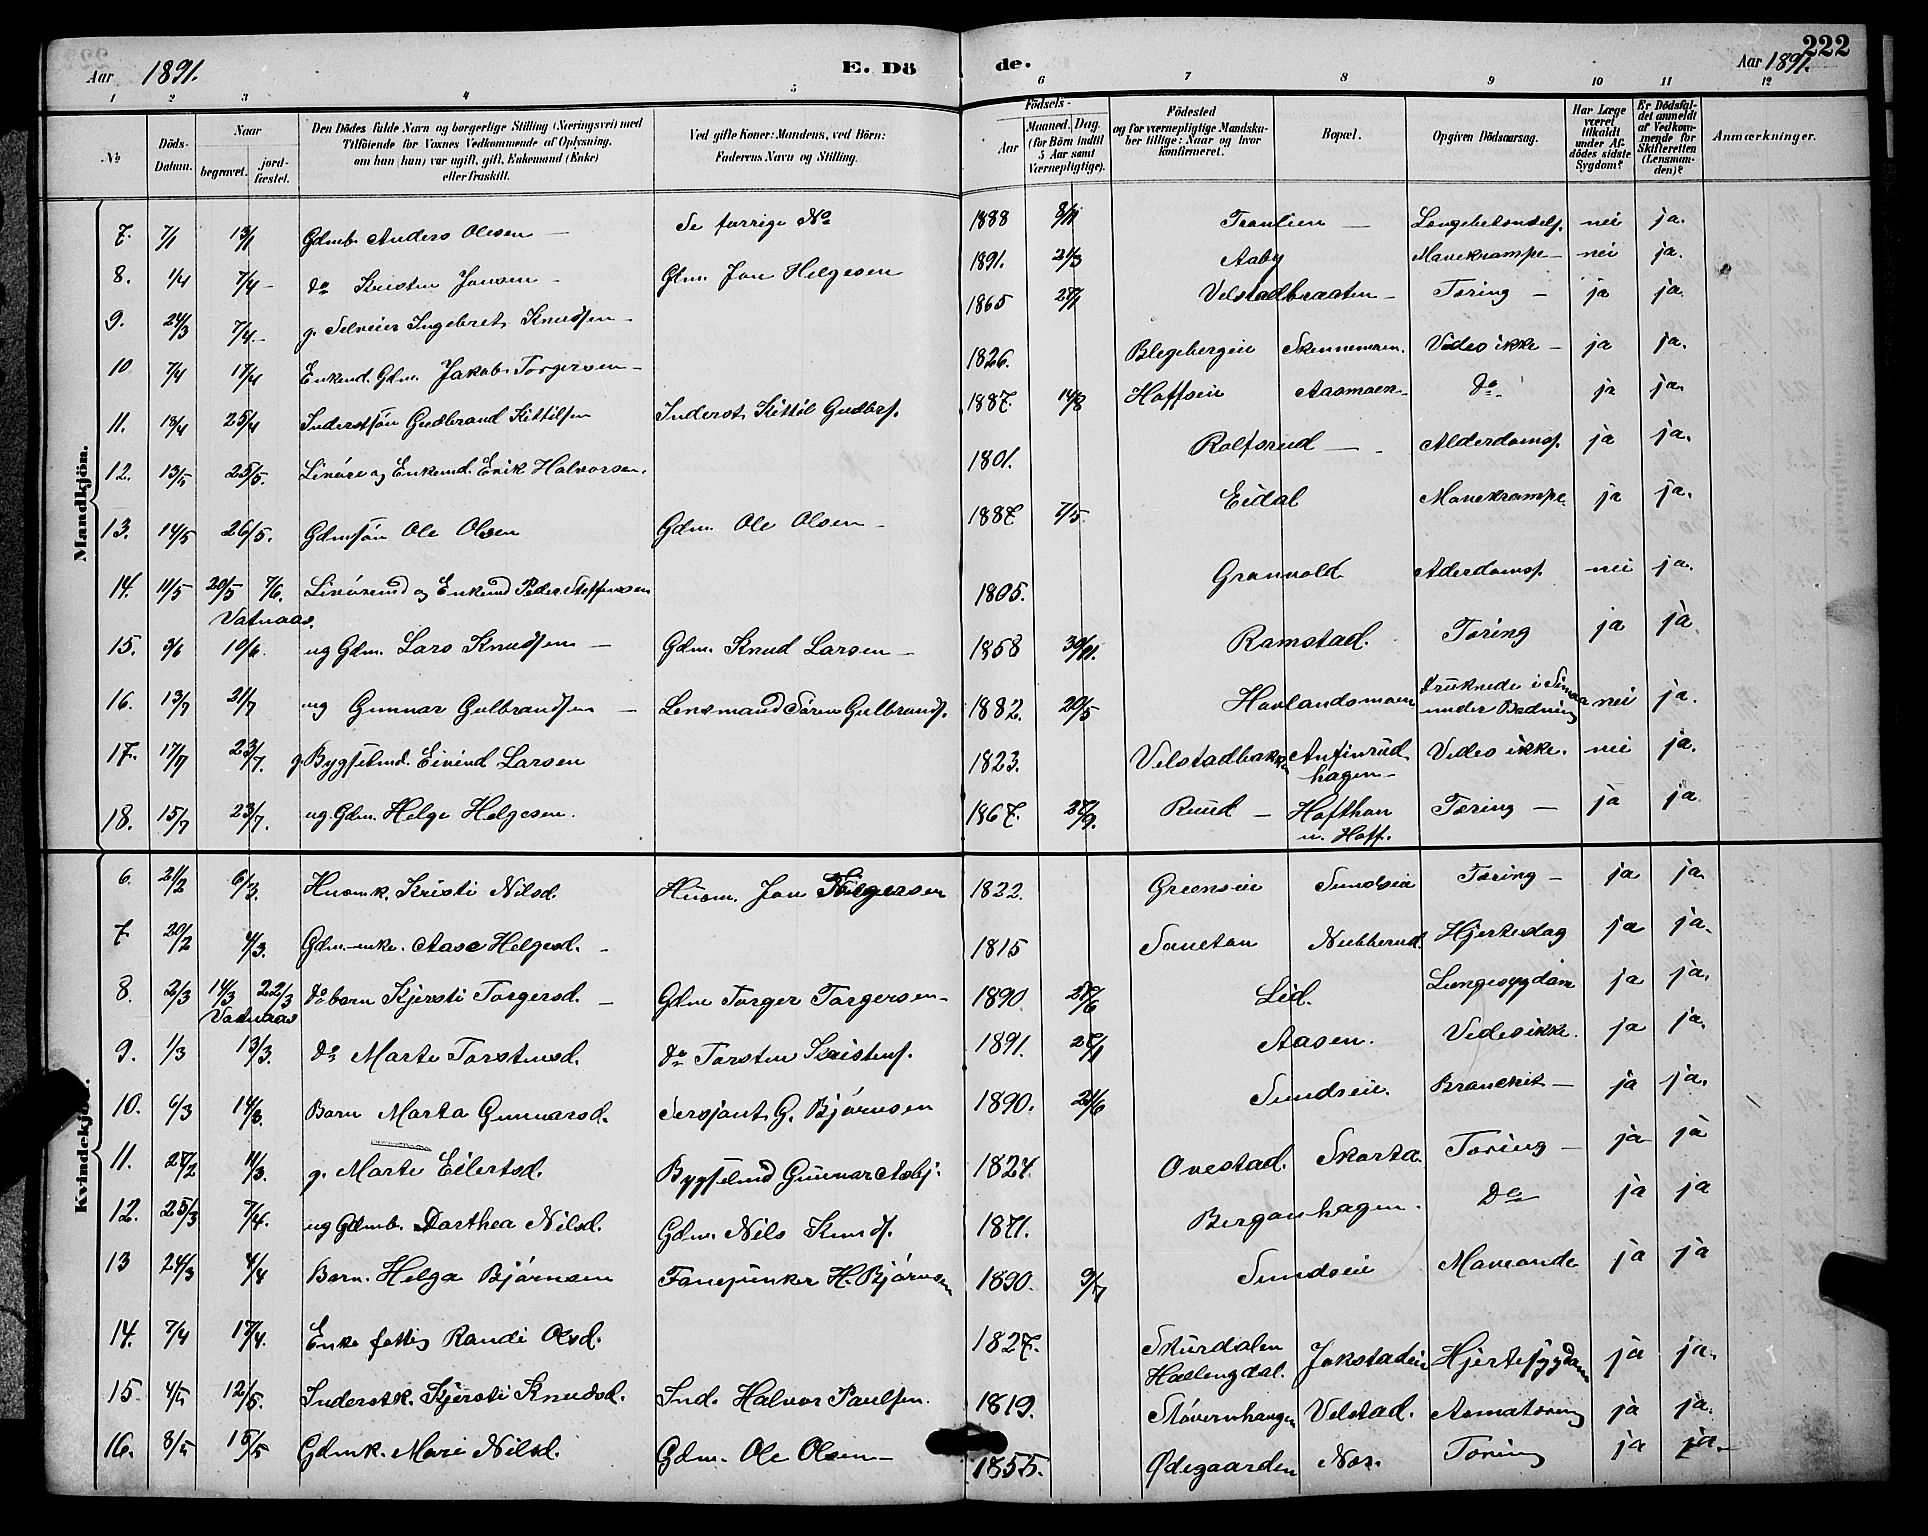 222
Aar 1891. E. Döde. Aar 1891.
1 2 3 4 5 6 7 8 9 10 11 12
No
Döds-Datum.
Naar
begravet.
jordfæstet.
Den Dödes fulde Navn og borgerlige Stilling (Næringsvei) med
Tilföiende for Voxnes Vedkommende af Oplysning,
om han (hun) var ugift, gift, Enkemand (Enke)
eller fraskilt.
Ved gifte Koner: Mandens, ved Börn:
Faderens Navn og Stilling.
Födsels-
Aar
Maaned. Dag.
(for Börn indtil
5 Aar samt
Værnepligtige).
Födested
og for værnepligtige Mandska-
ber tillige: Naar og hvor
konfirmeret.
Bopæl.
Opgiven Dödsaarsag.
Har Læge
været
tilkaldt
under Af-
dödes sidste
Sygdom?
Er Dödsfal-
det anmeldt
af Vedkom-
mende for
Skifteretten
(Lensman-
den)?
Anmærkninger.
Mandkjön.
7. 7/1 13/1 Gdmb. Anders Olesen — Se forrige No 1888 8/11 — nei ja.
8. 1/4 7/4 — do Kristen Jonsen — Gdm. Jon Helgesen 1891. 21/3 Aaby Mavekrampe — nei ja.
9. 24/3 7/4. — g. Selveier Ingebret Knudsen — 1865 27/1 Velstadbraaten — Tæring — ja ja.
10 7/4 17/4 Enkemd. Gdm. Jakob Torgersen — 1826. Blegebergeie Skinnemoen. Vides ikke — ja ja.
11. 18/4 25/4 Inderstsön Gudbrand Kittilsen Inderst Kittil Gudbrs. 1887. 14/8 Hoffseie Aasmoen — do ja ja.
12. 13/5 25/5. Livöre og Enkemd. Erik Halvorsen. 1801. Rolfsrud — Alderdomss. ja ja.
13. 14/5 26/5. Gdmsön Ole Olsen Gdm. Ole Olsen — 1887 7/5. Eidal Mavekrampe ja ja.
14. 11/5 20/5 7/6. Livöremd og Enkemd Peder Steffensen 1805. Grønvold Alderdomss. nei ja.
Vatnaas.
15. 3/6 10/6. ug Gdm. Lars Knudsen — Gdm. Knud Larsen — 1858 30/11. Ramstad. Tæring ja ja.
16. 13/7 21/7 ug Gunnar Gulbrandsen — Lensmand Sören Gulbrands. 1882. 20/5 Havlandsmoen Druknede i Simoa nei ja.
under Badning
17. 17/7 23/7. g. Bygselmd. Eivind Larsen 1823. Velstadbakken Anfinrud Vides ikke. nei ja.
hagen —
18. 15/7 23/7. ug. Gdm. Helge Helgesen. 1867. 27/9. Ruud — Hofthon Tæring — ja ja.
u. Hoff.
Kvindekjön.
6. 21/2 6/3. Husmk. Kristi Nilsd. Husm. Jon Torgersen 1822. Green­seie Sundseie Tæring — ja ja.
7 20/2 4/3. Gdm-enke. Aase Helgesd. — 1815 Nubberud. Hjerteslag ja ja.
8. 2/3 14/3 22/3 do barn Kjersti Torgersd. — Gdm Torger Torgersen — 1890. 27/6 Lid. Lungesygdom ja ja.
Vatnaas
9. 1/3 13/3. do Marte Torstensd. do Torsten Kristens. 1891. 27/1 Aasen. Vides ikke. ja ja.
10. 6/3 14/3. Barn Marta Gunnarsd. Sersjant G. Bjørnsen 1890. 21/6 Sundseie. Bronchit — ja ja.
11. 27/2 11/3. g. Marte Eilertsd. Bygselmd Gunnar Asbj. 1824. Ovestad. Skarta. Tæring — ja ja
12. 25/3 7/4. ug Gdmb. Dorthea Nilsd. Gdm. Nils Knuds. 1871. Berganhagen. Do ja ja
13 24/3 4/4 Barn. Helga Bjørnsen Fanejunker H. Bjørnsen 1890. 9/7 Sundseie Maveonde ja ja
14. 7/4 17/4. Enke fattig Randi Olsd. 1827. Skurdalen Jokstadeie Hjertesygdom ja ja.
Hallingdal.
15. 4/5 12/5. Inderstk. Kjersti Knudsd. Ind. Halvor Paulsen. 1819. Støvernhaugen Velstad. Asmatæring ja ja.
16. 8/5 15/5 Gdmk. Mari Nilsd. Gdm. Ole Olsen — 1855. Ødegaarden Nor. Tæring ja ja. —